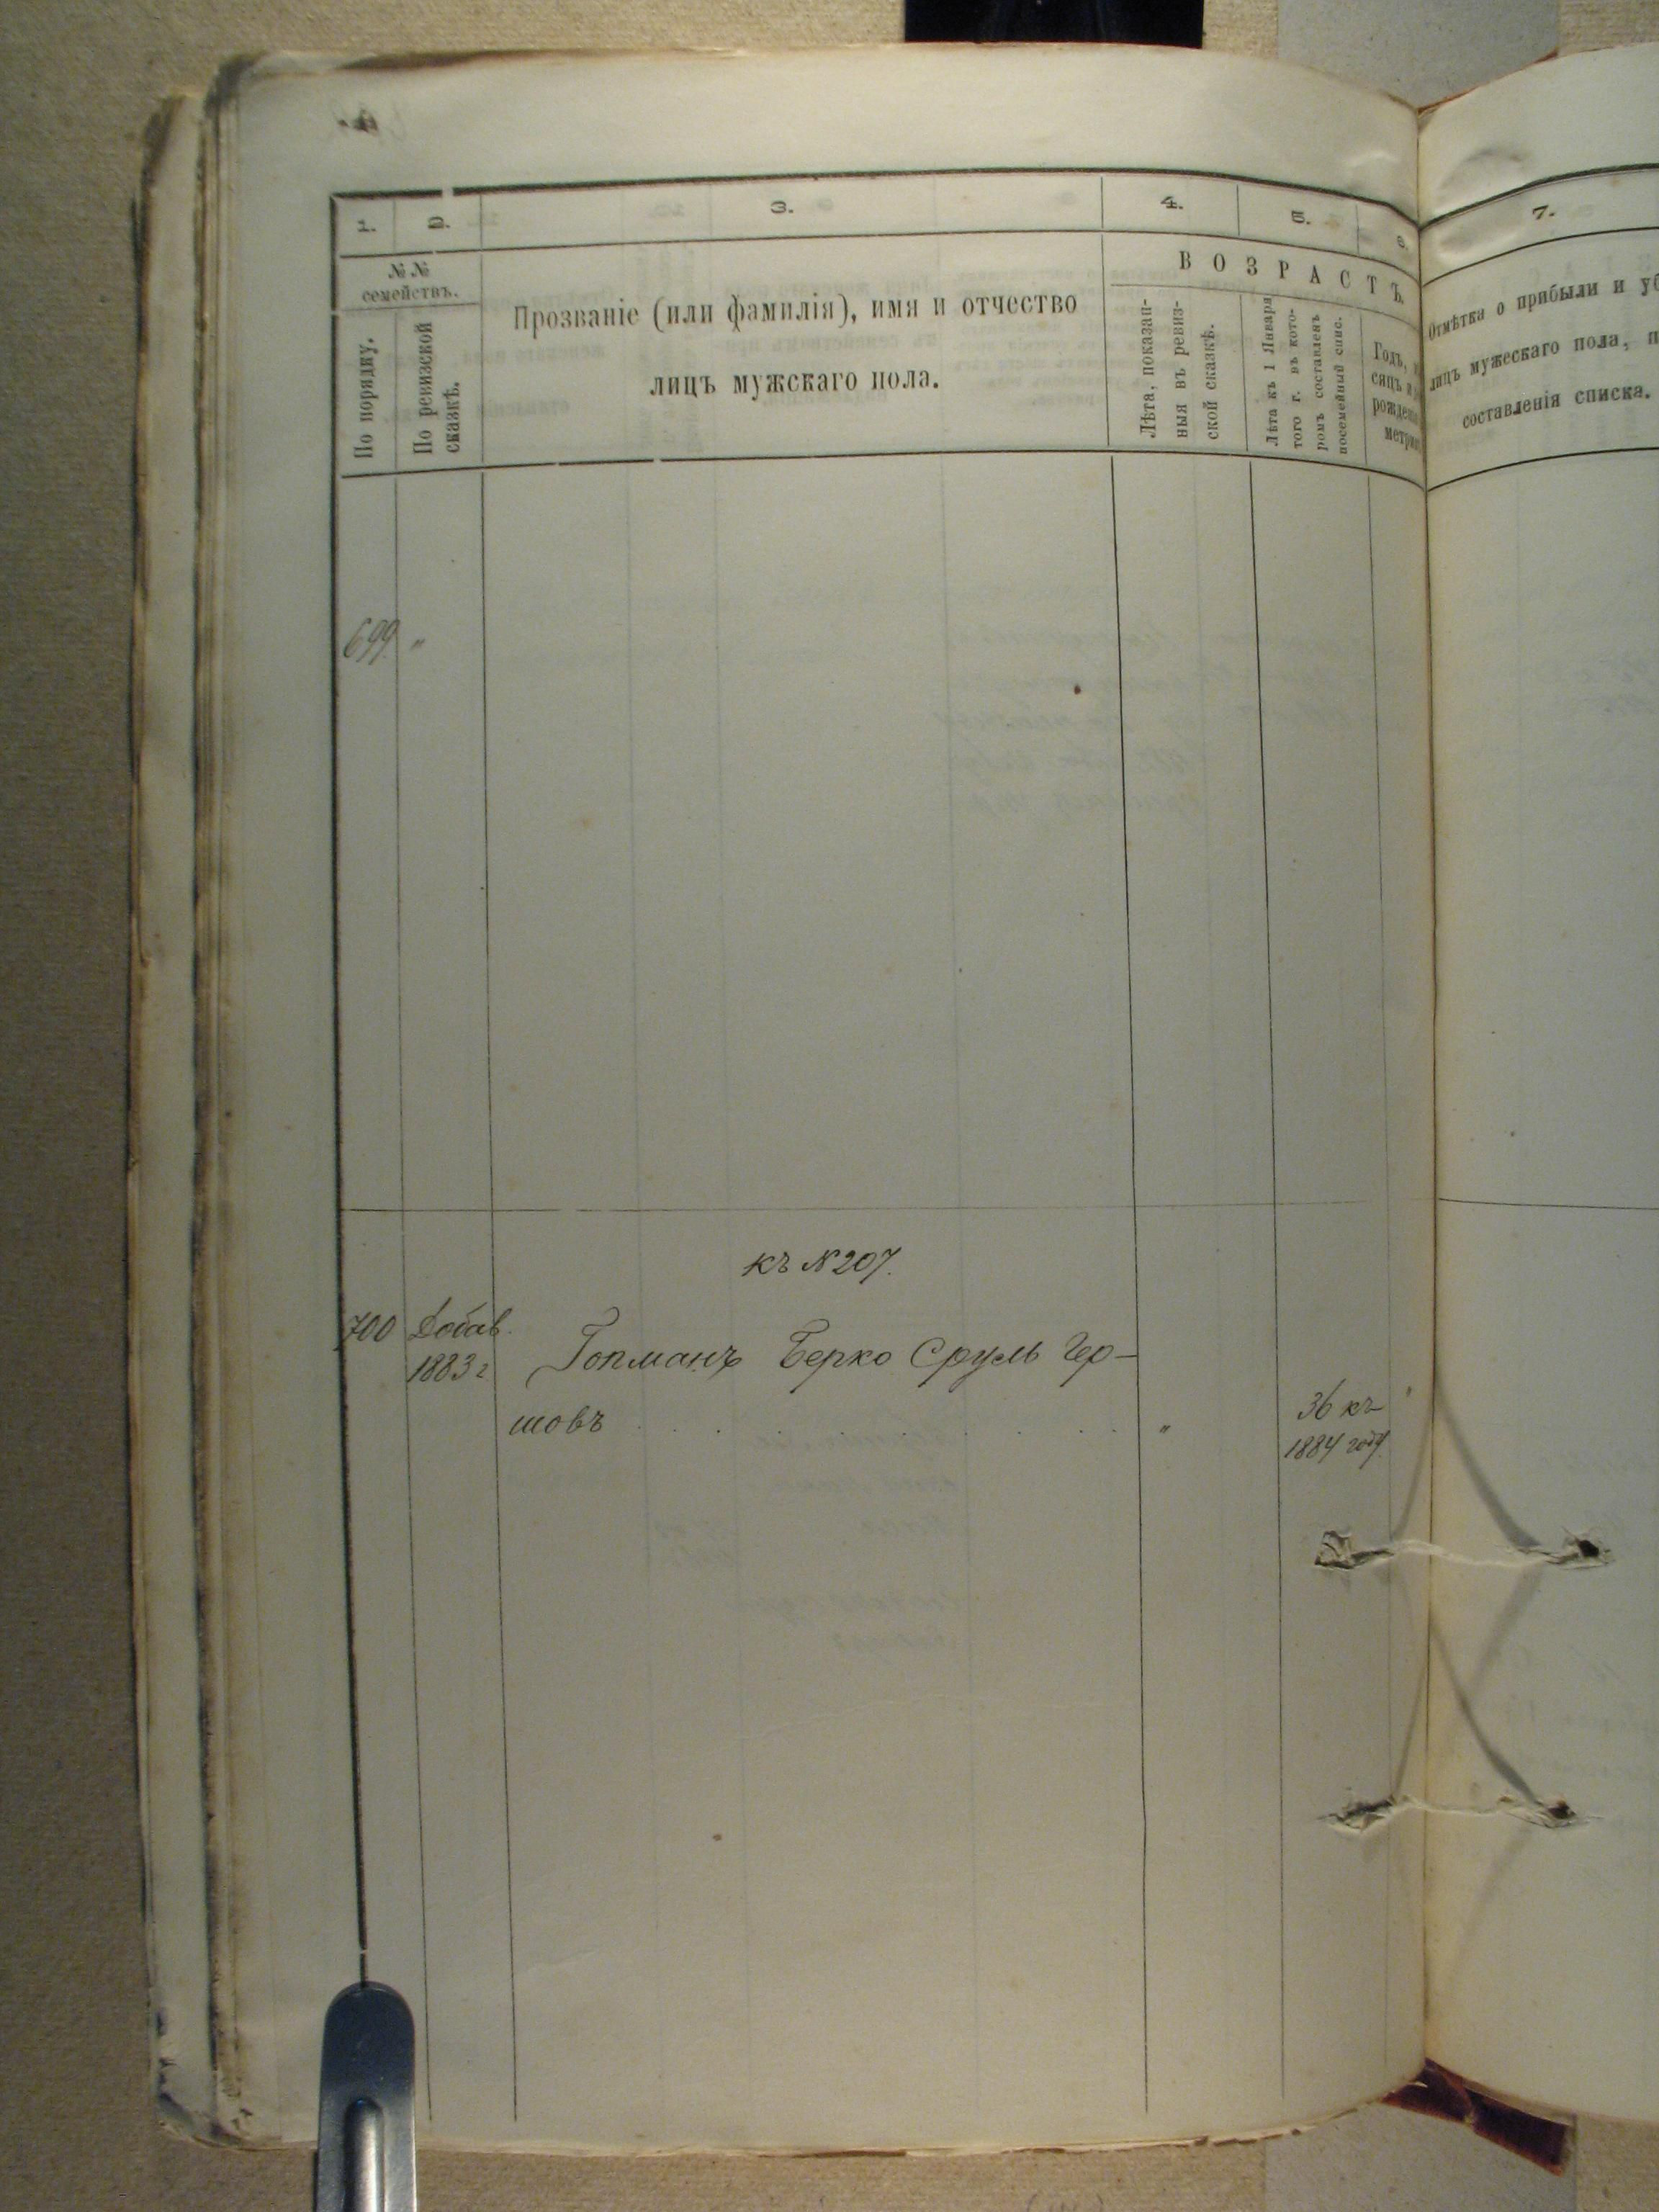 1. 2. 3. 4. 5. 6.
№№ семействъ.
По порядку.
По ревизской сказкѣ.
Прозваніе (или фамилія), имя и отчество
лицъ мужскаго пола.
ВОЗРАСТЪ.
Лѣта, показан-
ныя въ ревиз-
ской сказкѣ.
Лѣта къ 1 Января
того г. въ кото-
ромъ составленъ
посемейный спис.
Годъ,
рожден
метри
7.
Отмѣтка о прибыли и уб
лицъ мужескаго пола, п
составленія списка.
699. "
къ № 207.
700 Добав. 1883 г
Гопманъ Берко Сруль Гер-
шовъ . . . . . . . . "
36 къ
1884 году.